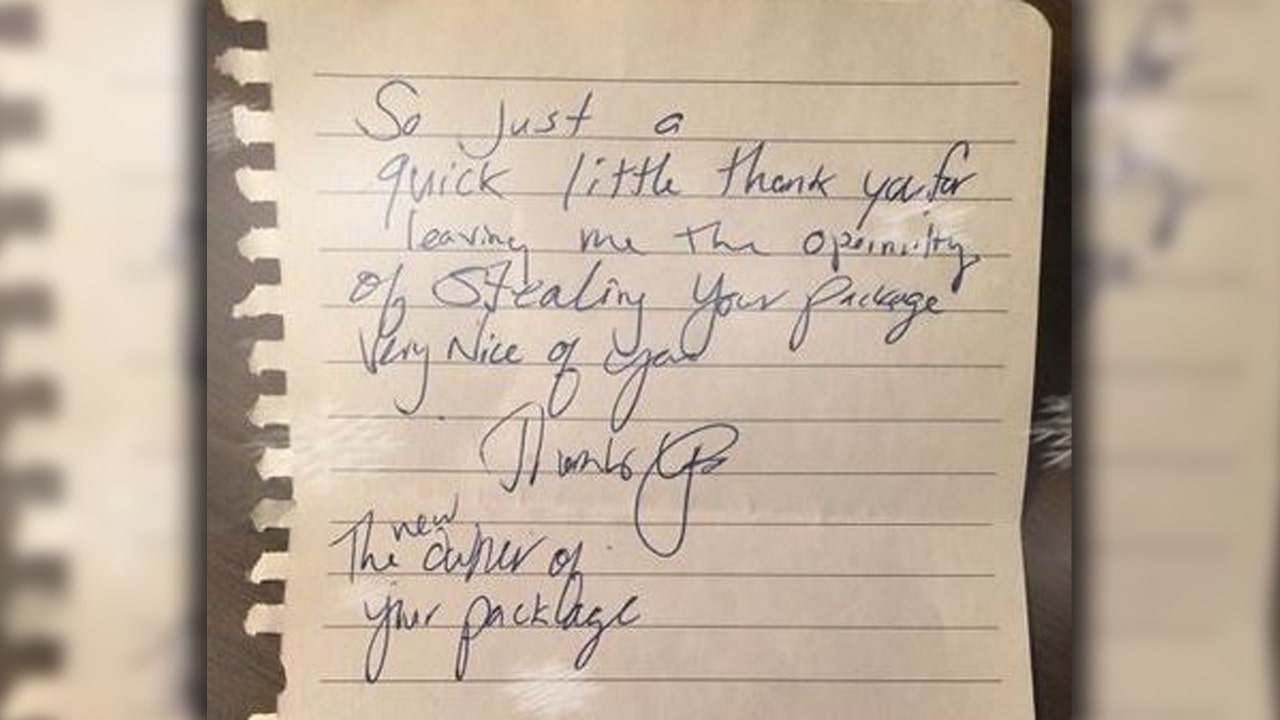 So Just a
quick little thank you for
leaving me the
of Stealing Your package
Very Nice of you
Thanks
The new owner of
your packlage